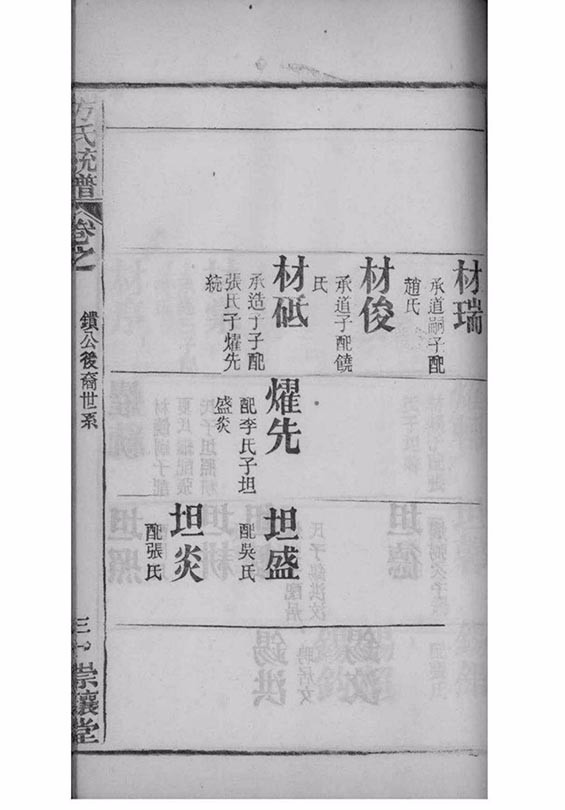 材瑞
承道嗣子配
趙氏
材俊
承道子配饒
氏
材砥
承造子子配
張氏子燿先
統
燿先
配李氏子坦
盛炎
坦盛
配吳氏
坦炎
配張氏
方氏統譜
卷之
鐀公後裔世系
三十
崇讓堂